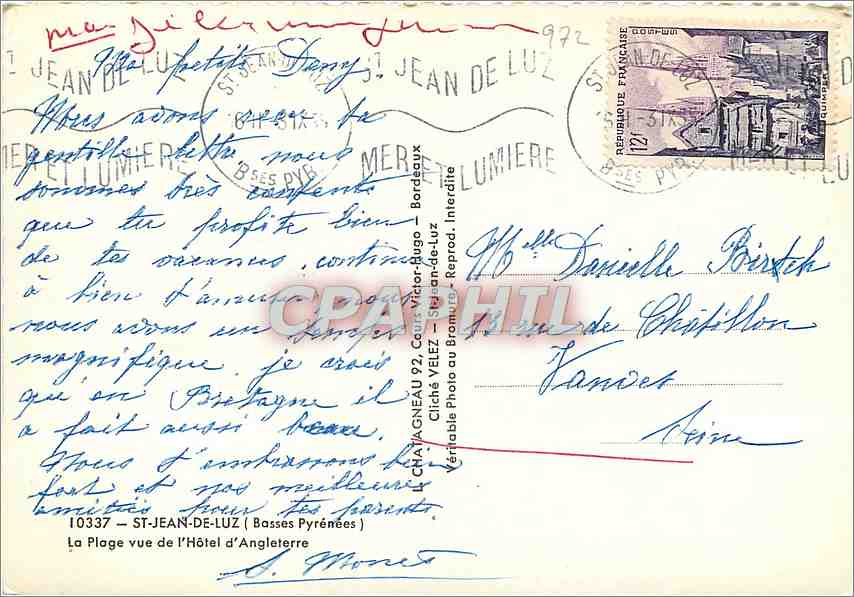 972
ST JEAN DE LUZ
MER ET LUMIERE
ST JEAN-DE-LUZ
Bses PYR.
ST JEAN DE LUZ
MER ET LUMIERE
ST JEAN-DE-LUZ
Bses PYR.
RÉPUBLIQUE FRANÇAISE
POSTES
12f
QUIMPER
Ma petite Dany
Nous avons reçu ta
gentille lettre nous
sommes très contents
que tu profite bien
de tes vacances, continue
à bien t'amuser nous
nous avons un temps
magnifique, je crois
qu'en Bretagne il
a fait aussi beau.
Nous t'embrassons bien
fort et nos meilleures
amitiés pour tes parents.
S. Monet
Melle Danielle Birsch
13 rue de Châtillon
Vanves
Seine
L. CHATAGNEAU 92, Cours Victor-Hugo — Bordeaux
Cliché VELEZ — St-Jean-de-Luz
Véritable Photo au Bromure - Reprod. Interdite
CPAPHIL
10337 — ST-JEAN-DE-LUZ ( Basses Pyrénées )
La Plage vue de l'Hôtel d'Angleterre